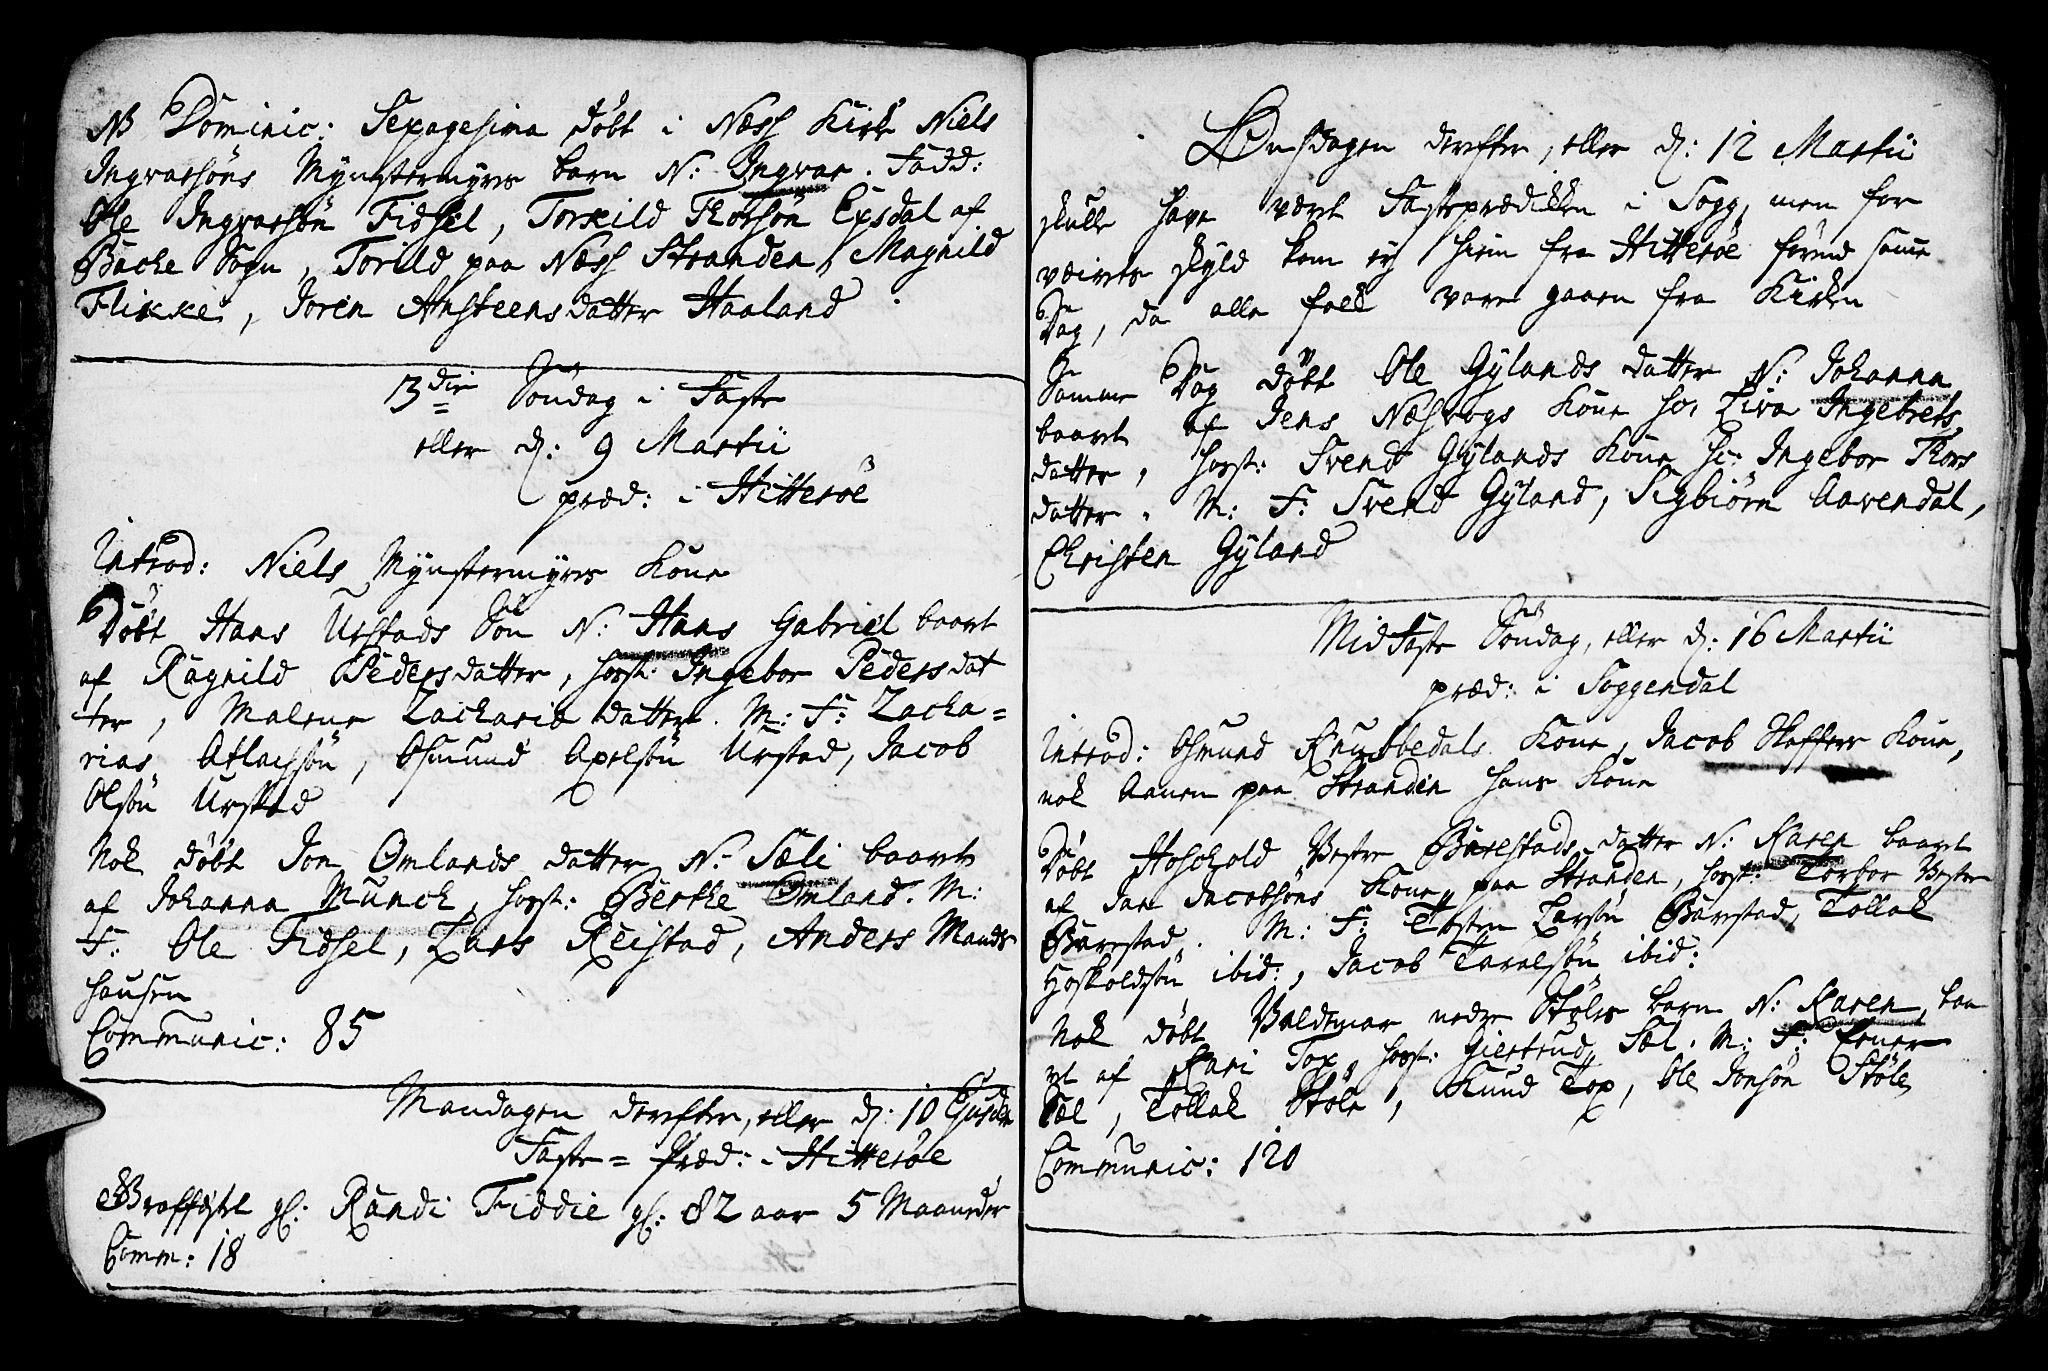 NB Dominic: Sexagesima døbt i Næss Kirke Niels
Ingvarsøns Mÿnstermÿrs barn N: Ingvar. Fadd:
Ole Ingvarsøn Fidsel, Torkild Thorsøn Epsdal af
Bache Sogn, Torild paa Næss Stranden, Magnild
Flikke, Joren Ansteensdatter Haaland
3die Søndag i Faste
eller d: 9 Martii
præd: i Hitterøe
Introd: Niels Mÿnstermÿrs Kone
Døbt Hans Urstads Søn N: Hans Gabriel baaret
af Ragnild Pedersdatter, hosst: Ingebor Pedersdat
ter, Malene Zachariædatter. M: F: Zacha=
rias Atlachsøn, Osmund Axelsøn Urstad, Jacob
Olsøn Urstad
Nok døbt Jon Omlands datter N: Sæli baaret
af Johanna Munck, hosst: Berthe Omland. M:
F: Ole Fidsel, Lars Reistad, Anders Mands
hausen
Communic: 85
Mandagen derefter, eller d: 10 Ejusdem
Faste=Præd: i Hitterøe
Graffæstet gl: Randi Fiddie gl: 82 aar 5 Maaneder
Comm: 18
Onsdagen derefter, eller d: 12 Martii
skulle have vært Fasteprædicken i Sogg, men for
væirets skyld kom eÿ hiem fra Hitterøe førend samme
Dag, da alle folk vare gaaen fra Kirken
Samme Dag døbt Ole Gÿlands datter N: Johanna
baaret af Jens Næsvogs Kone h: Liva Ingebrets
datter, hosst: Svend Gÿlands Kone h: Ingebor Thors
datter. M: F: Svend Gÿland, Sigbiørn Aavendal,
Christen Gÿland
MidFaste Søndag, eller d: 16 Martii
præd: i Soggendal
Introd: Osmund Knubbedals Kone, Jacob Skoffers Kone,
nok Aanen paa Stranden hans Kone
Døbt Hoskold Vestre Barestads datter N: Karen baaret
af Jan Jacobsøns Kone paa Stranden, hosst: Torbor Vestre
Barestad. M: F: Tosten Larsøn Barstad, Tollak
Hoskoldsøn ibid:, Jacob Taralsøn ibid:
Nok døbt Valdemar nedre Støles barn N: Karen, baa
ret af Kari Top, hosst: Giertrud Sæl. M: F: Enner
Sæl, Tollak Støle, Knud Top, Ole Jonsøn Støle
Communic: 120